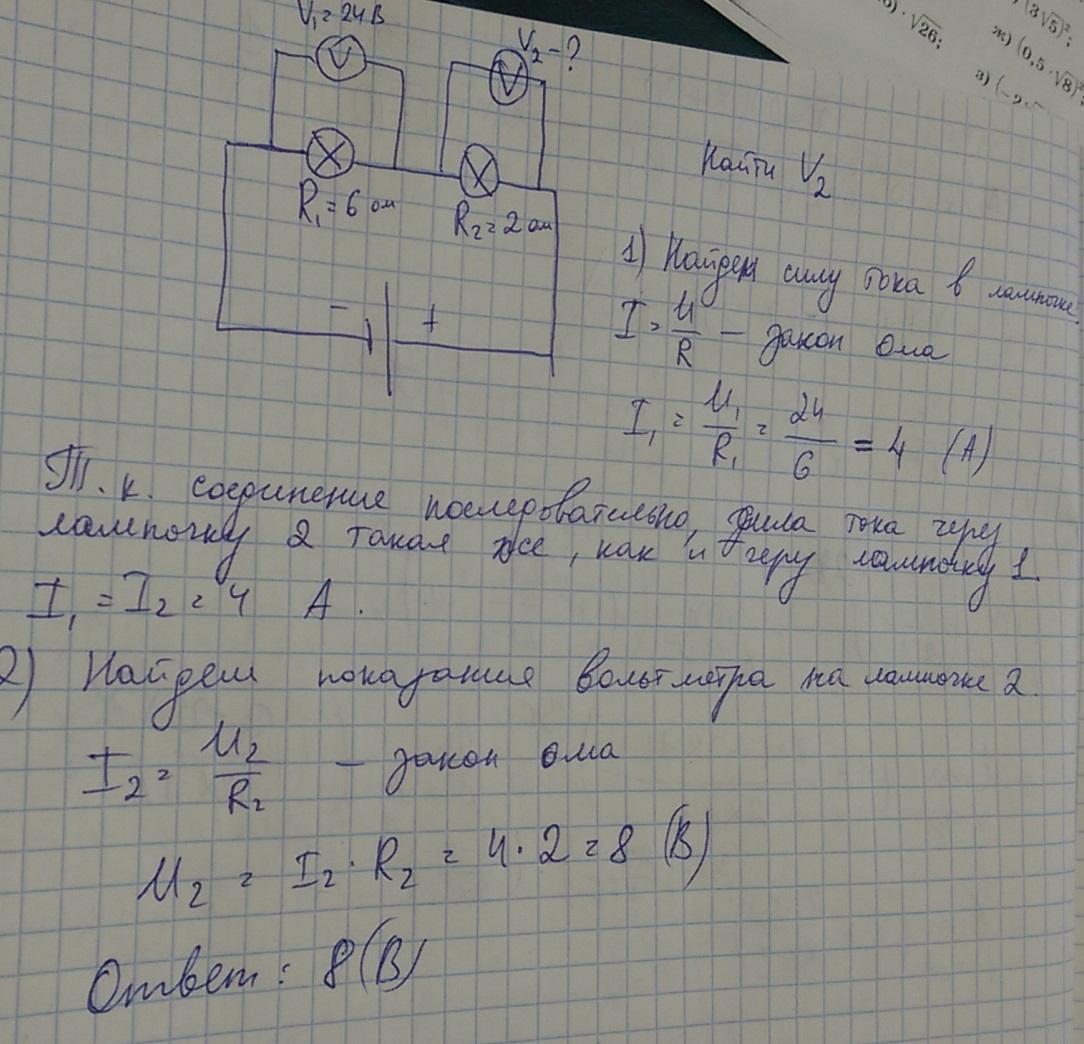 V₁ = 24 В
V₂ - ?
V
V
R₁ = 6 ом
R₂ = 2 ом
- +
б) · √26;
(3√5)²;
ж) (0,5 · √8)²;
з) (-2
Найти V₂
1) Найдем силу тока в лампочке.
I = U/R - закон ома
I₁ = U₁/R₁ = 24/6 = 4 (А)
Т.к. соединение последовательно, сила тока через
лампочку 2 такая же, как и через лампочку 1
I₁ = I₂ = 4 А.
2) Найдем показания вольтметра на лампочке 2.
I₂ = U₂/R₂ - закон ома
U₂ = I₂ · R₂ = 4 · 2 = 8 (В)
Ответ: 8 (В)